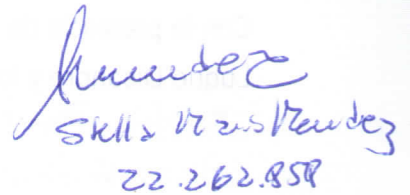 Mendez
Stella Maris Mendez
22.262.858